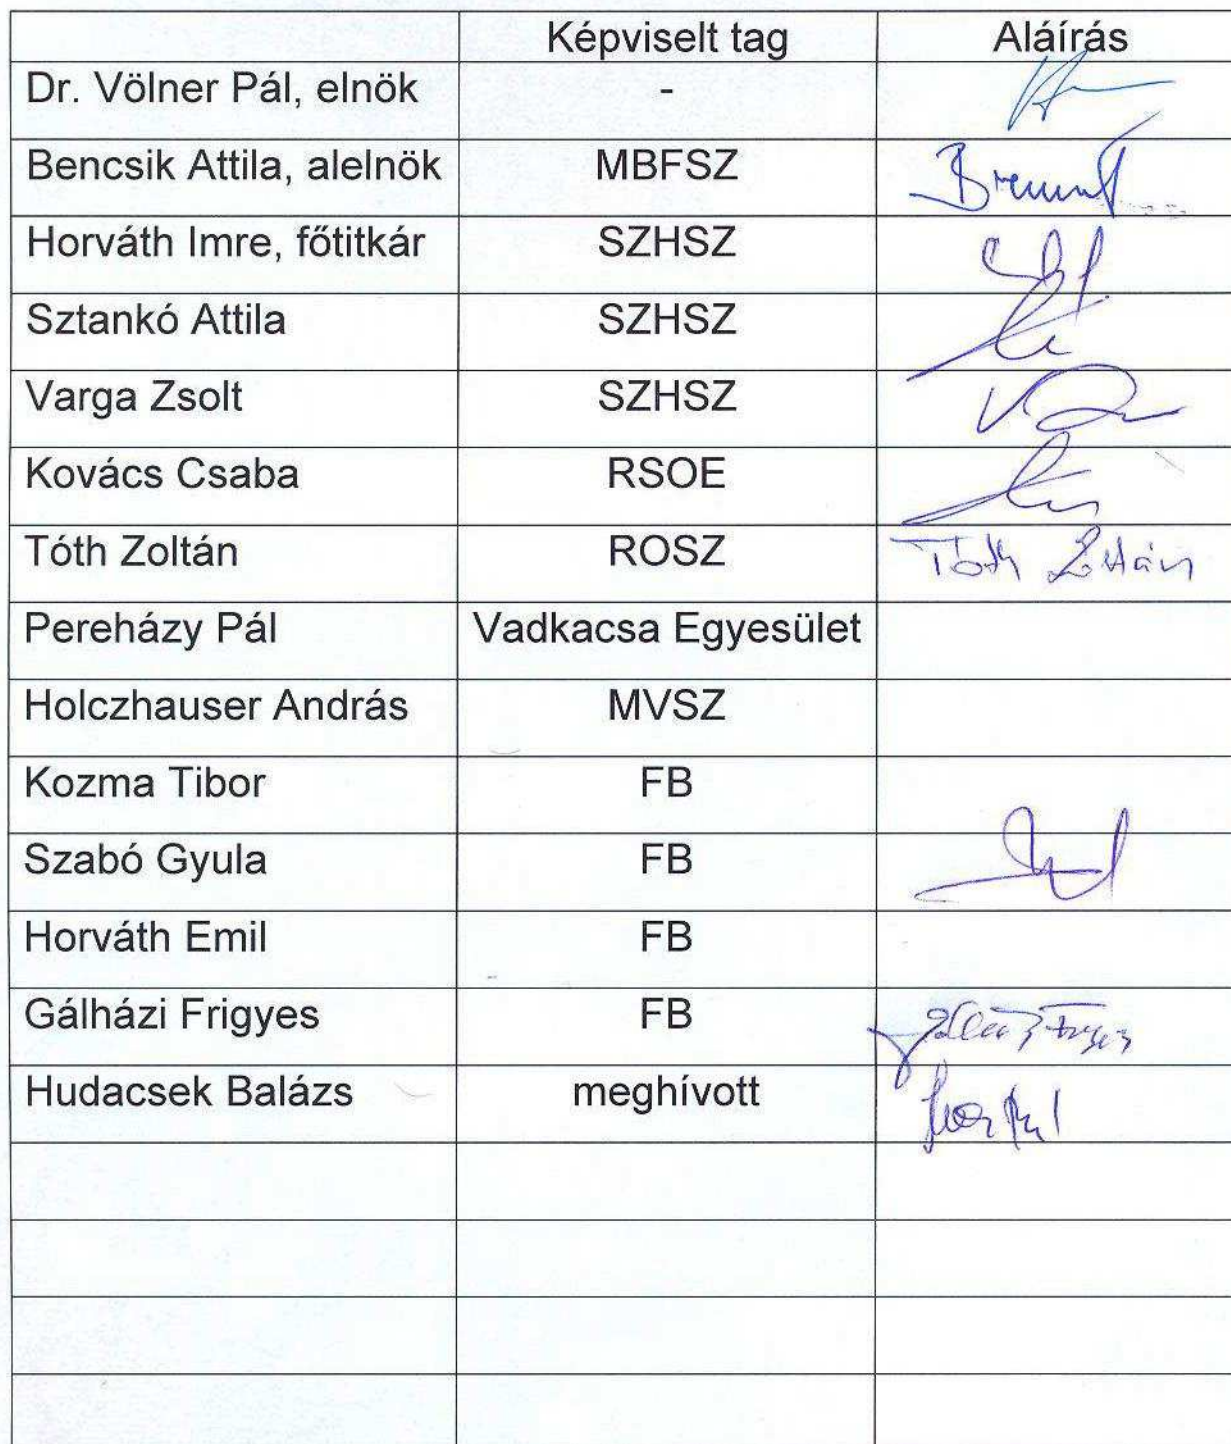 Képviselt tag Aláírás
Dr. Völner Pál, elnök -
Bencsik Attila, alelnök MBFSZ
Horváth Imre, főtitkár SZHSZ
Sztankó Attila SZHSZ
Varga Zsolt SZHSZ
Kovács Csaba RSOE
Tóth Zoltán ROSZ Tóth Zoltán
Pereházy Pál Vadkacsa Egyesület
Holczhauser András MVSZ
Kozma Tibor FB
Szabó Gyula FB
Horváth Emil FB
Gálházi Frigyes FB
Hudacsek Balázs meghívott